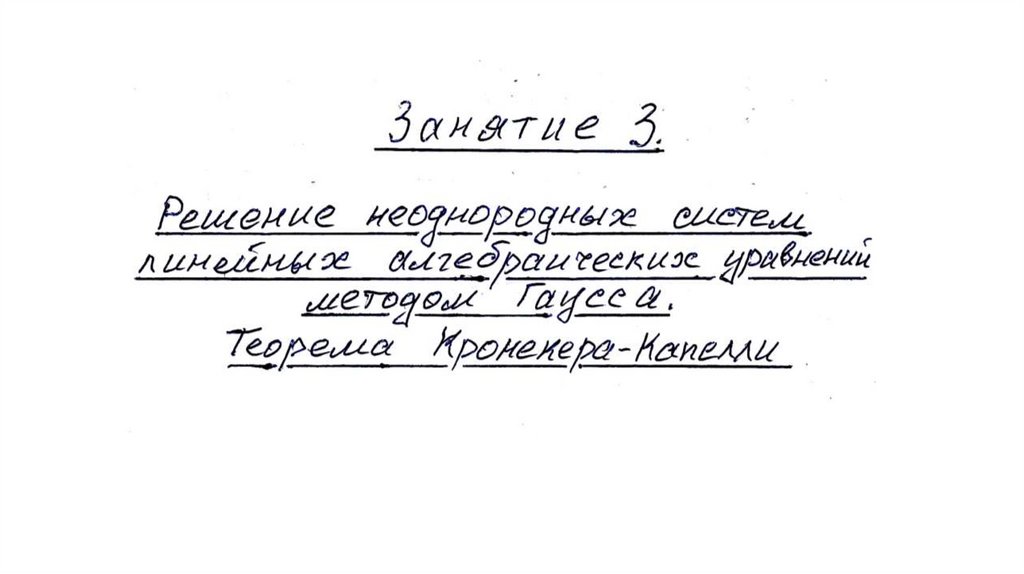 Занятие 3.
Решение неоднородных систем
линейных алгебраических уравнений
методом Гаусса.
Теорема Кронекера-Капелли